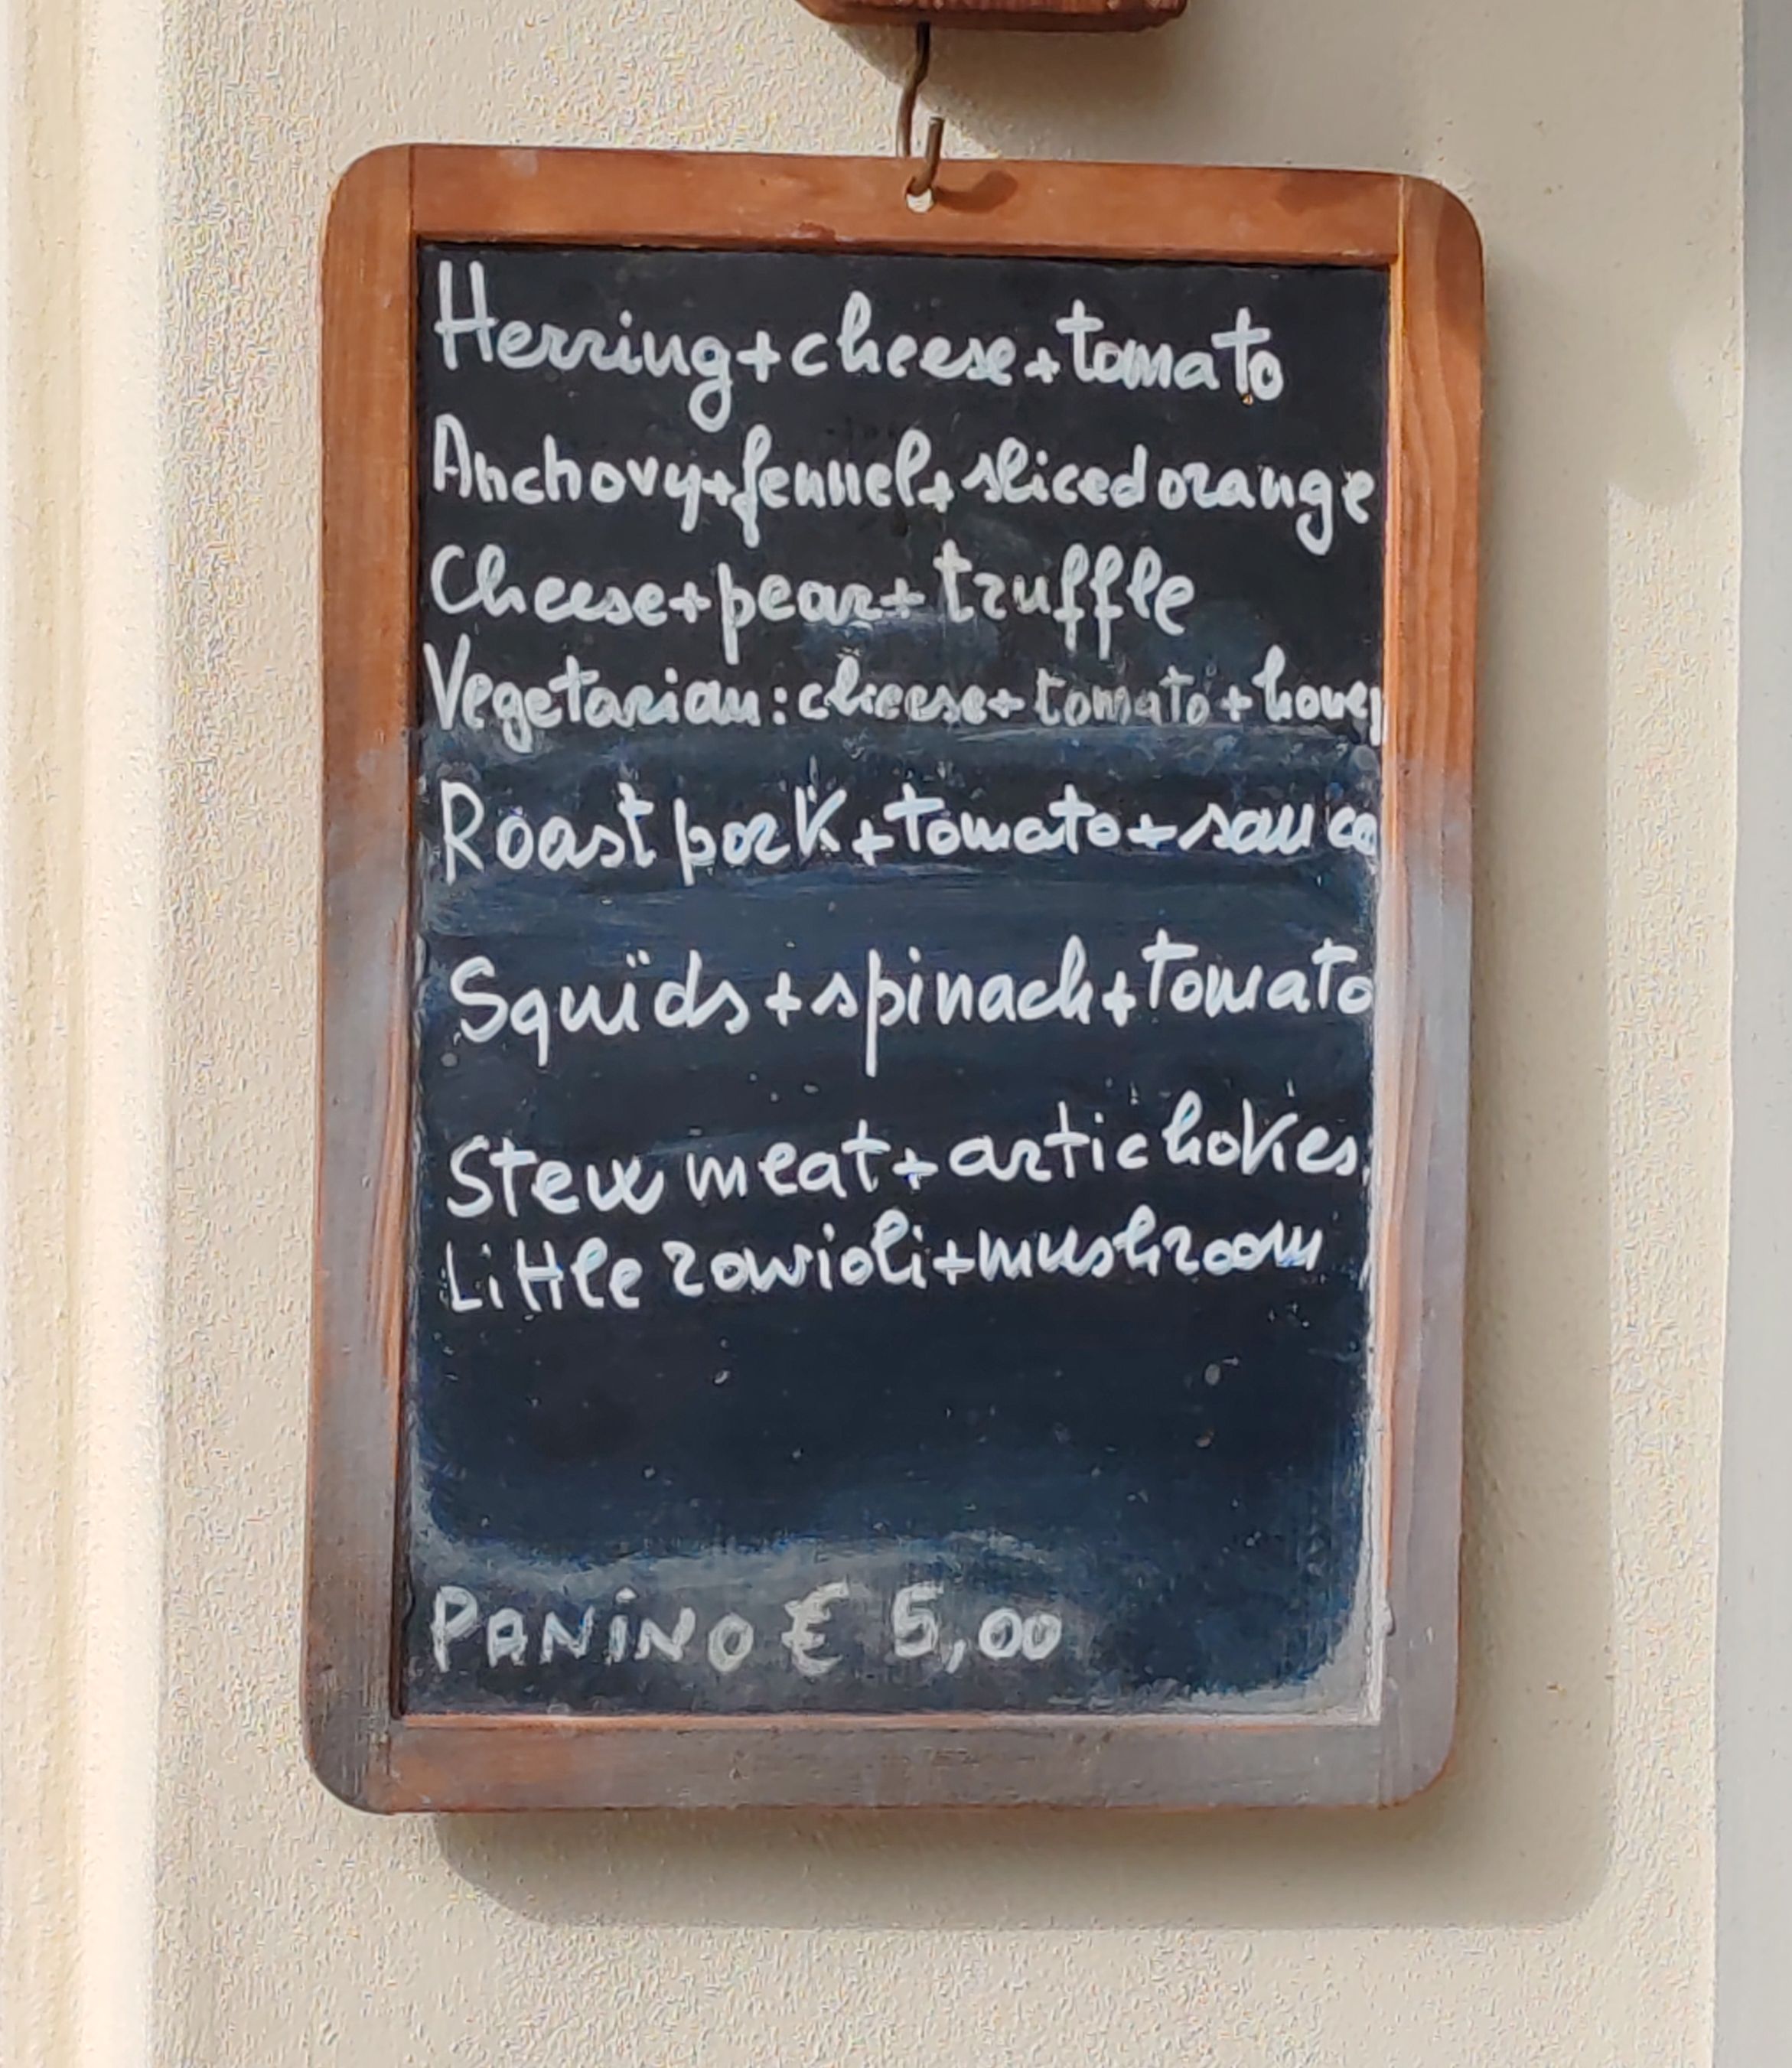 Herring+cheese+tomato
Anchovy+fennel+sliced orange
Cheese+pear+truffle
Vegetarian: cheese+tomato+honey
Roast pork+tomato+sauce
Squids+spinach+tomato
Stew meat+artichokes
Little rowioli+mushroom
PANINO € 5,00